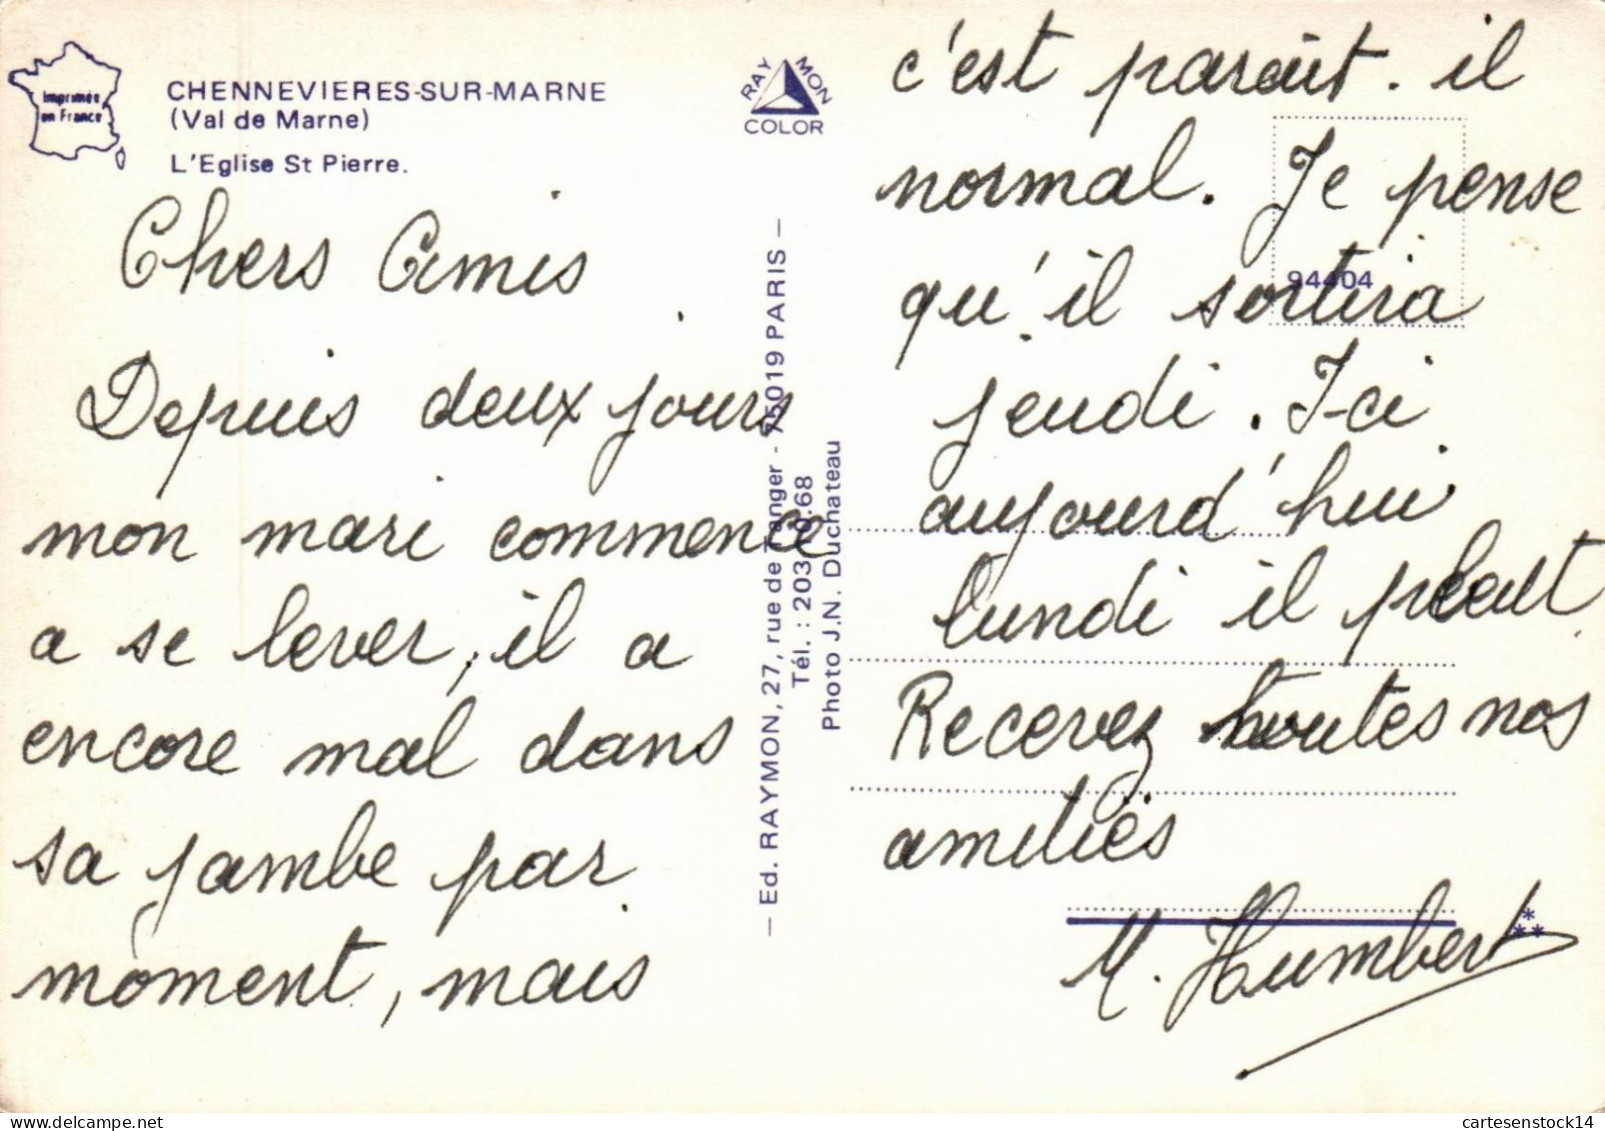 Imprimée
en France
CHENNEVIERES-SUR-MARNE
(Val de Marne)
L'Eglise St Pierre.
RAYMON
COLOR
Chers Amis
Depuis deux jours
mon mari commence
a se lever, il a
encore mal dans
sa jambe par
moment, mais
— Ed. RAYMON, 27, rue de Tanger - 75019 PARIS —
Tél. : 203 68
Photo J.N. Duchateau
c'est parait. il
normal. Je pense
94404
qu'il sortira
jeudi. I-ci
aujourd'hui
lundi il pleut
Recevez toutes nos
amitiés
M. Humbert
cartesenstock14